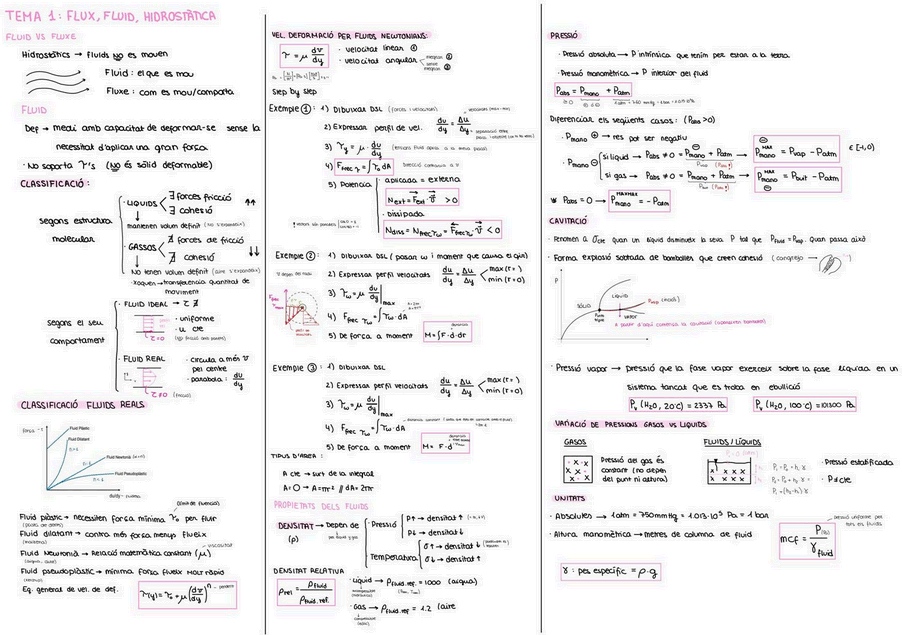 TEMA 1: FLUX, FLUID, HIDROSTÀTICA
FLUID VS FLUXE
Hidrostàtics → fluids no es mouen
Fluid: el que es mou
Fluxe: com es mou/comporta
FLUID
Def → medi amb capacitat de deformar-se sense la
necessitat d'aplicar una gran força
· No suporta τ's (No és sòlid deformable)
CLASSIFICACIÓ:
segons estructura
molecular
· LIQUIDS ∃ forces fricció
∃ cohesió ↑↑
mantenen volum definit (no s'expandeix)
· GASSOS ∄ forces de fricció
∄ cohesió ↓↓
No tenen volum definit (aire s'expandeix)
· Xoquen → transferència quantitat de
moviment
segons el seu
comportament
· FLUID IDEAL → τ ∄
· uniforme
· u cte
τ=0
· FLUID REAL
· circula a més v
pel centre
· paràbola: du/dy
τ≠0 (fricció)
CLASSIFICACIÓ FLUIDS REALS
força - τ
Fluid Plàstic
Fluid Dilatant
Fluid Newtonià
Fluid Pseudoplàstic
(límit de fluència)
Fluid plàstic → necessiten força mínima τ₀ per fluir
Fluid dilatant → contra més força menys flueix
viscositat
Fluid Newtonià → Relació matemàtica constant (μ)
Fluid pseudoplàstic → mínima força flueix molt ràpid
Eq. general de vel. de def. τ(y) = τ₀ + μ(dv/dy)ⁿ
VEL. DEFORMACIÓ PER FLUIDS NEWTONIANS:
τ = μ dv/dy
· velocitat linear ①
· velocitat angular
②
③
Step by step
Exemple ①: 1) Dibuixar DSL (forces i velocitats)
2) Expressar perfil de vel. du/dy = Δu/Δy
3) τy = μ · du/dy
4) Ffrec τ = ∫τ₀ dA Direcció contrària a v
5) Potència
· aplicada = externa
Next = Fext · v > 0
· dissipada
Ndiss = Nfrec τw = Ffrec τw · v < 0
Exemple ②: 1) Dibuixar DSL (posar w i moment que causa el gir)
2) Expressar perfil velocitats du/dy = Δu/Δy max(r= ) min(r=0)
3) τw = μ du/dy |max
4) Ffrec τw = ∫τw · dA
5) De força a moment M = ∫F·d·dr
Exemple ③: 1) Dibuixar DSL
2) Expressar perfil velocitats du/dy = Δu/Δy max(r= ) min(r=0)
3) τw = μ du/dy |max
4) Ffrec τw = ∫τw · dA
5) De força a moment M = F·d
TIPUS D'ÀREA:
A cte → surt de la integral
A = O → A = πr² // dA = 2πr
PROPIETATS DELS FLUIDS
DENSITAT → Depèn de
(ρ)
· Pressió
P↑ → densitat ↑
P↓ → densitat ↓
· Temperatura
σ↑ → densitat ↓
σ↓ → densitat ↑
DENSITAT RELATIVA
ρrel = ρfluid / ρfluid.ref.
· Líquid → ρfluid.ref = 1000 (aigua)
· Gas → ρfluid.ref = 1.2 (aire
PRESSIÓ
· Pressió absoluta → P intrínsica que tenim per estar a la terra.
· Pressió manomètrica → P interior del fluid
Pabs = Pmano + Patm
Diferenciar els següents casos: (Pabs >0)
· Pmano ⊕ → res pot ser negatiu
· Pmano ⊖
si líquid → Pabs ≠ 0 = Pmano + Patm
Pmano MAX = Pvap − Patm ∈ [-1,0)
si gas → Pabs ≠ 0 = Pmano + Patm
Pmano MAX = Pbuit − Patm
* Pabs = 0 → Pmano MAXMAX = − Patm
CAVITACIÓ
· Fenomen a σcte quan un líquid disminueix la seva P tal que Pfluid = Pvap. quan passa això
· Forma explosió sobtada de bombolles que creen cohesió (cangrejo → )
P
SÒLID
LÍQUID
VAPOR
Punt triple
· Pressió vapor → pressió que la fase vapor exerceix sobre la fase líquida en un
sistema tancat que es troba en ebullició
Pv (H2O, 20°C) = 2337 Pa
Pv (H2O, 100°C) = 101300 Pa
VARIACIÓ DE PRESSIONS GASOS VS LIQUIDS
GASOS
Pressió del gas és
constant (no depèn
del punt ni altura)
FLUIDS / LÍQUIDS
· Pressió estatificada
· P≠cte
UNITATS
· Absolutes → 1atm = 750mmHg = 1.013·10⁵ Pa = 1 bar
· Altura manomètrica → metres de columna de fluid
mcf = P(Pa) / γfluid
γ: pes específic = ρ·g